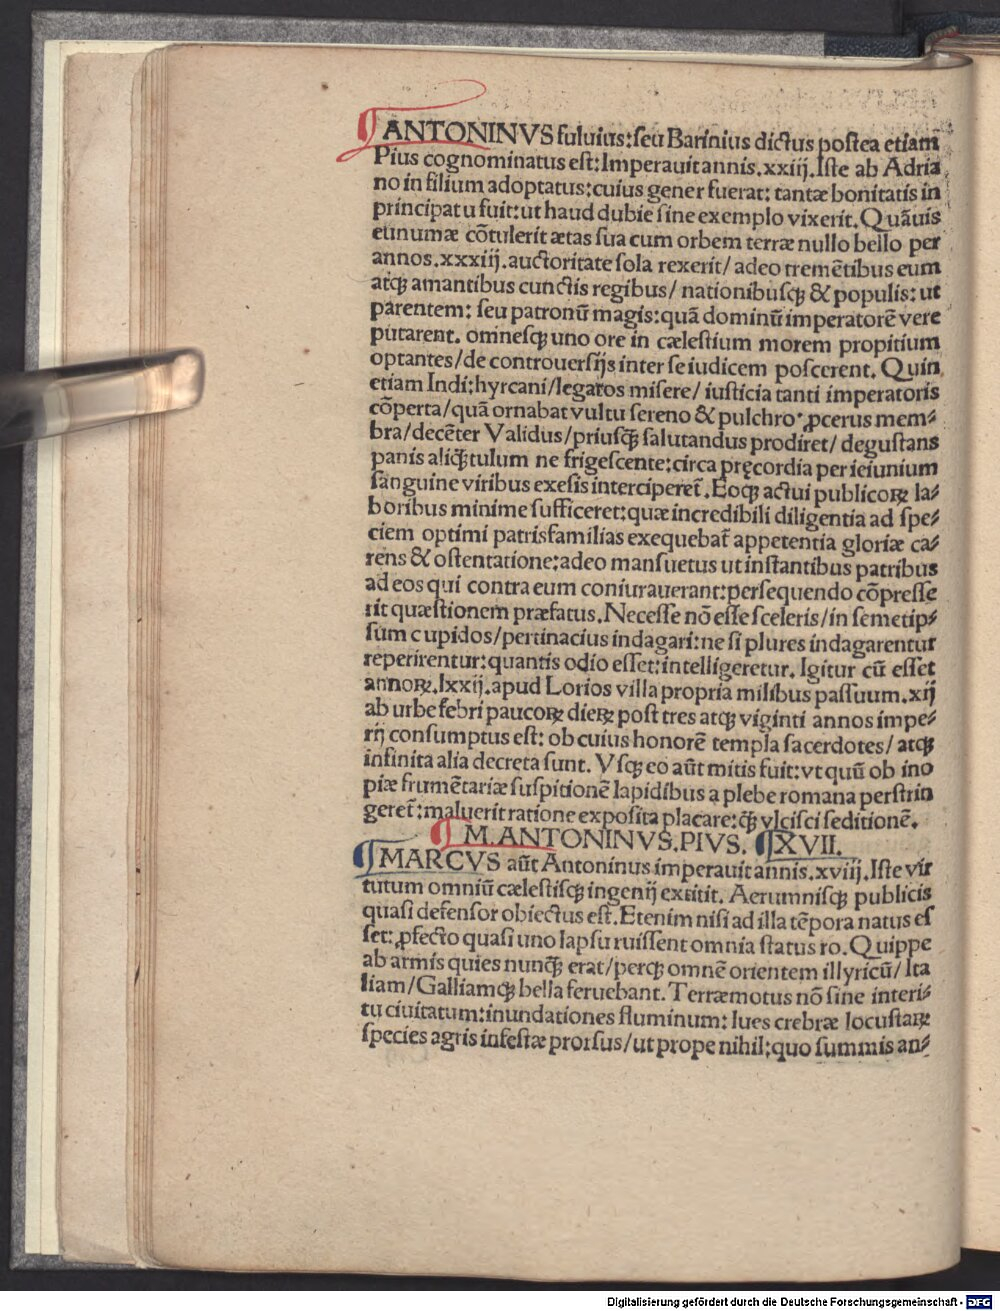 ANTONINVS fuluius:seu Barinius dictus postea etiam
Pius cognominatus est:Imperauit annis.xxiij.Iste ab Adria
no in filium adoptatus:cuius gener fuerat: tantæ bonitatis in
principatu fuit:ut haud dubie sine exemplo vixerit.Quāuis
eūnumæ cōtulerit ætas sua cum orbem terræ nullo bello per
annos.xxxiij.auctoritate sola rexerit/adeo tremētibus eum
atqꝫ amantibus cunctis regibus/nationibusqꝫ & populis: ut
parentem: seu patronū magis:quā dominū imperatorē vere
putarent. omnesqꝫ uno ore in cælestium morem propitium
optantes/de controuersijs inter se iudicem poscerent. Quin
etiam Indi:hyrcani/legatos misere/ iusticia tanti imperatoris
cōperta/quā ornabat vultu sereno & pulchro ꝓcerus mem⸗
bra/decēter Validus/priusqꝫ̃ salutandus prodiret/degustans
panis aliqꝫ̃tulum ne frigescente:circa pręcordia per ieiunium
sanguine viribus exesis interciperet̃.Eoqꝫ actui publicoꝝ la⸗
boribus minime sufficeret:quæ incredibili diligentia ad spe⸗
ciem optimi patrisfamilias exequebat̃ appetentia gloriæ ca⸗
rens & ostentatione:adeo mansuetus ut instantibus patribus
ad eos qui contra eum coniurauerant:persequendo cōpresse
rit quæstionem præfatus.Necesse nō esse sceleris/in semetip⸗
sum cupidos/pertinacius indagari:ne si plures indagarentur
reperirentur:quantis odio esset:intelligeretur. Igitur cū esset
annoꝝ.lxxij.apud Lorios villa propria milibus passuum.xij
ab urbe febri paucoꝝ dieꝝ post tres atqꝫ viginti annos impe⸗
rij consumptus est: ob cuius honorē templa sacerdotes/ atqꝫ
infinita alia decreta sunt. Vsqꝫ eo aūt mitis fuit:vt quū ob ino
piæ frumētariæ suspitionē lapidibus a plebe romana perstrin
geret̃:maluerit ratione exposita placare:qꝫ̃ vlcisci seditionē.
M.ANTONINVS.PIVS. XVII.
MARCVS aūt Antoninus imperauit annis.xviij.Iste vir
tutum omniū cælestisqꝫ ingenij extitit. Aerumnisqꝫ publicis
quasi defensor obiectus est.Etenim nisi ad illa tēpora natus es
set:ꝓfecto quasi uno lapsu ruissent omnia status ro.Quippe
ab armis quies nunqꝫ̃ erat/perqꝫ omnē orientem illyricū/Ita
liam/Galliamqꝫ bella feruebant.Terræmotus nō sine interi⸗
tu ciuitatum:inundationes fluminum: lues crebræ locustaꝝ
species agris infestæ prorsus/ut prope nihil:quo summis an⸗
Digitalisierung gefördert durch die Deutsche Forschungsgemeinschaft - DFG